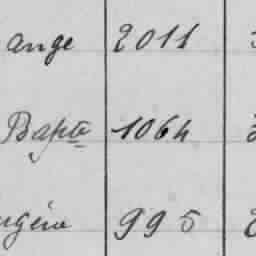 ange 2011
Bapte 1064
995